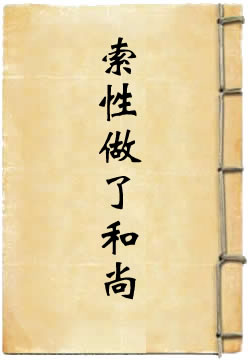 索性做了和尚